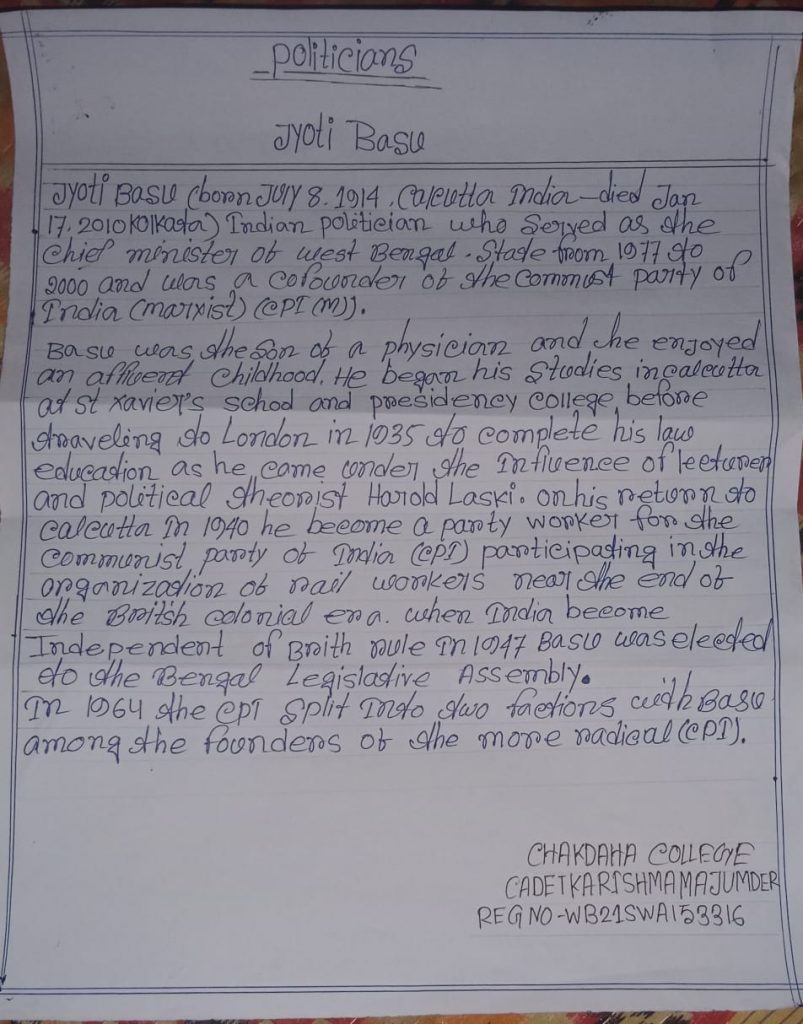 politicians
Jyoti Basu
Jyoti Basu (born July 8. 1914. Calcutta India-died Jan
17. 2010 Kolkata) Indian politician who served as the
chief minister of west Bengal. State from 1977 to
2000 and was a cofounder of the Commust party of
India (marxist) (CPI (M)).
Basu was the son of a physician and he enjoyed
an affluent childhood. He began his studies in calcutta
at st xavier's school and presidency college before
traveling to London in 1935 to complete his law
education as he came under the Influence of lecturer
and political theorist Harold Laski. on his return to
calcutta in 1940 he become a party worker for the
communist party of India (CPI) participating in the
organization of rail workers near the end of
the British colonial era. when India become
Independent of Brith rule in 1947 Basu was elected
to the Bengal Legislative Assembly.
In 1964 the CPI split Into two factions with Basu
among the founders of the more radical (CPI).
CHAKDAHA COLLEGE
CADET KARISHMA MAJUMDER
REG NO-WB21SWA153316